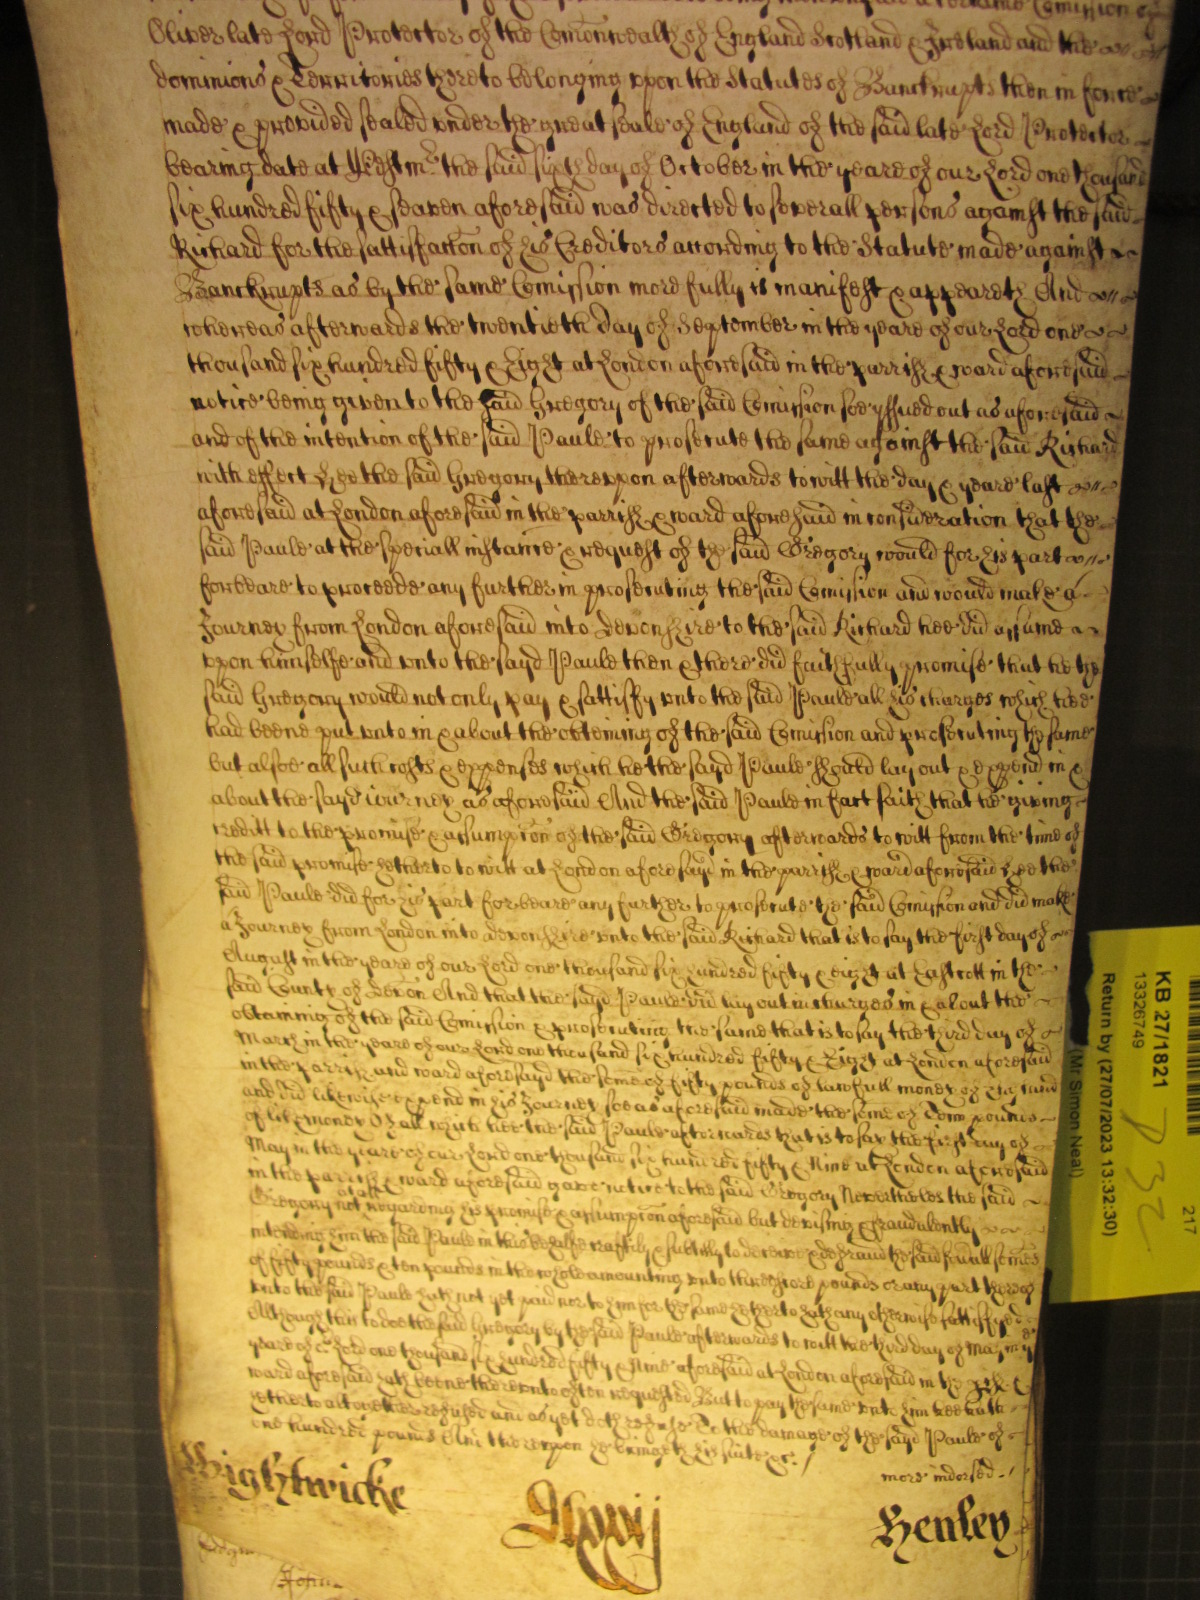 Oliver late Lord Protector of the Comonwealth of England Scotland & Ireland and the
dominions & Territories thereto belonging upon the Statutes of Banckrupts then in force
made & provided sealed under the great seale of England of the said late Lord Protector
bearing date at Westmr the said sixth day of October in the yeare of our Lord one thousand
six hundred fifty & seaven aforesaid was directed to severall persons against the said
Richard for the sattisfaccon of his Creditors according to the Statute made against
Banckrupts as by the same Comission more fully is manifest & appeareth And
whereas afterwards the twentieth day of September in the yeare of our Lord one
thousand six hundred fifty & Eight at London aforesaid in the parrish & ward aforesaid
notice being given to the said Gregory of the said Comission soe yssued out as aforesaid
and of the intention of the said Paule to prosecute the same against the said Richard
with effect Hee the said Gregory thereupon afterwards to witt the day & yeare last
aforesaid at London aforesaid in the parrish & ward aforesaid in consideration that the
said Paule at the speciall instance & request of the said Gregory would for his part
forbeare to proceede any further in prosecuting the said Comission and would make a
Journey from London aforesaid into Devonshire to the said Richard hee did assume
upon himselfe and unto the sayd Paule then & there did faithfully promise that he the
said Gregory would not only pay & sattisfy unto the said Paule all his charges which hee
had beene put unto in & about the obteining of the said Comission and prosecuting the same
but alsoe all such costs & expenses which he the sayd Paule should lay out & expend in &
about the sayd iourney as aforesaid And the said Paule in fact saith that he giving
creditt to the promise & assumpcon of the said Gregory afterwards to witt from the time of
the said promise hetherto to witt at London aforesayd in the parrish & ward aforesaid hee the
said Paule did for his part forbeare any further to prosecute the said Comission and did make
a Journey from London into Devonshire unto the said Richard that is to say the first day of
August in the yeare of our Lord one thousand six hundred fifty & eight at Eastcott in the
said County of Devon And that the sayd Paule did lay out in charges in & about the
obtaining of the said Comission & prosecuting the same that is to say the third day of
March in the yeare of our Lord one thousand six hundred fifty & Eight at London aforesaid
in the parrish and ward aforesayd the some of fifty pounds of lawfull money of England
and did likewise expend in his Journey soe as aforesaid made the some of Tenn pounds
of like money Of all which hee the said Paule afterwards that is to say the first day of
May in the yeare of our Lord one thousand six hundred fifty & Nine at London aforesaid
in the parrish & ward aforesaid gave notice to the said Gregory Nevertheles the said
Gregory not att all regarding his promise & assumpcon aforesaid but devising & fraudulently
intending him the said Paule in this behalfe craftily & subtilly to deceive & defraud the said severall somes
of fifty pounds & ten pounds in the whole amounting unto threescore pounds or any part thereof
unto the said Paule hath not yet paid nor to him for the same hetherto hath any otherwise sattisfyed
Although this to doe the said Gregory by the said Paule afterwards to witt the third day of May in ye
yeare of or Lord one thousand six hundred fifty & Nine aforesaid at London aforesaid in the
ward aforesaid hath beene thereunto often requested But to pay the same unto him hee hath
hetherto altogether refused and as yet doth refuse To the damage of the sayd Paule of
one hundred pounds And thereupon he bringeth his suite &c.
more indorsed
Wightwicke
Henley
John
KB 27/1821
13326749
Return by (27/07/2023 13:32:30)
(Mr Simon Neal)
217